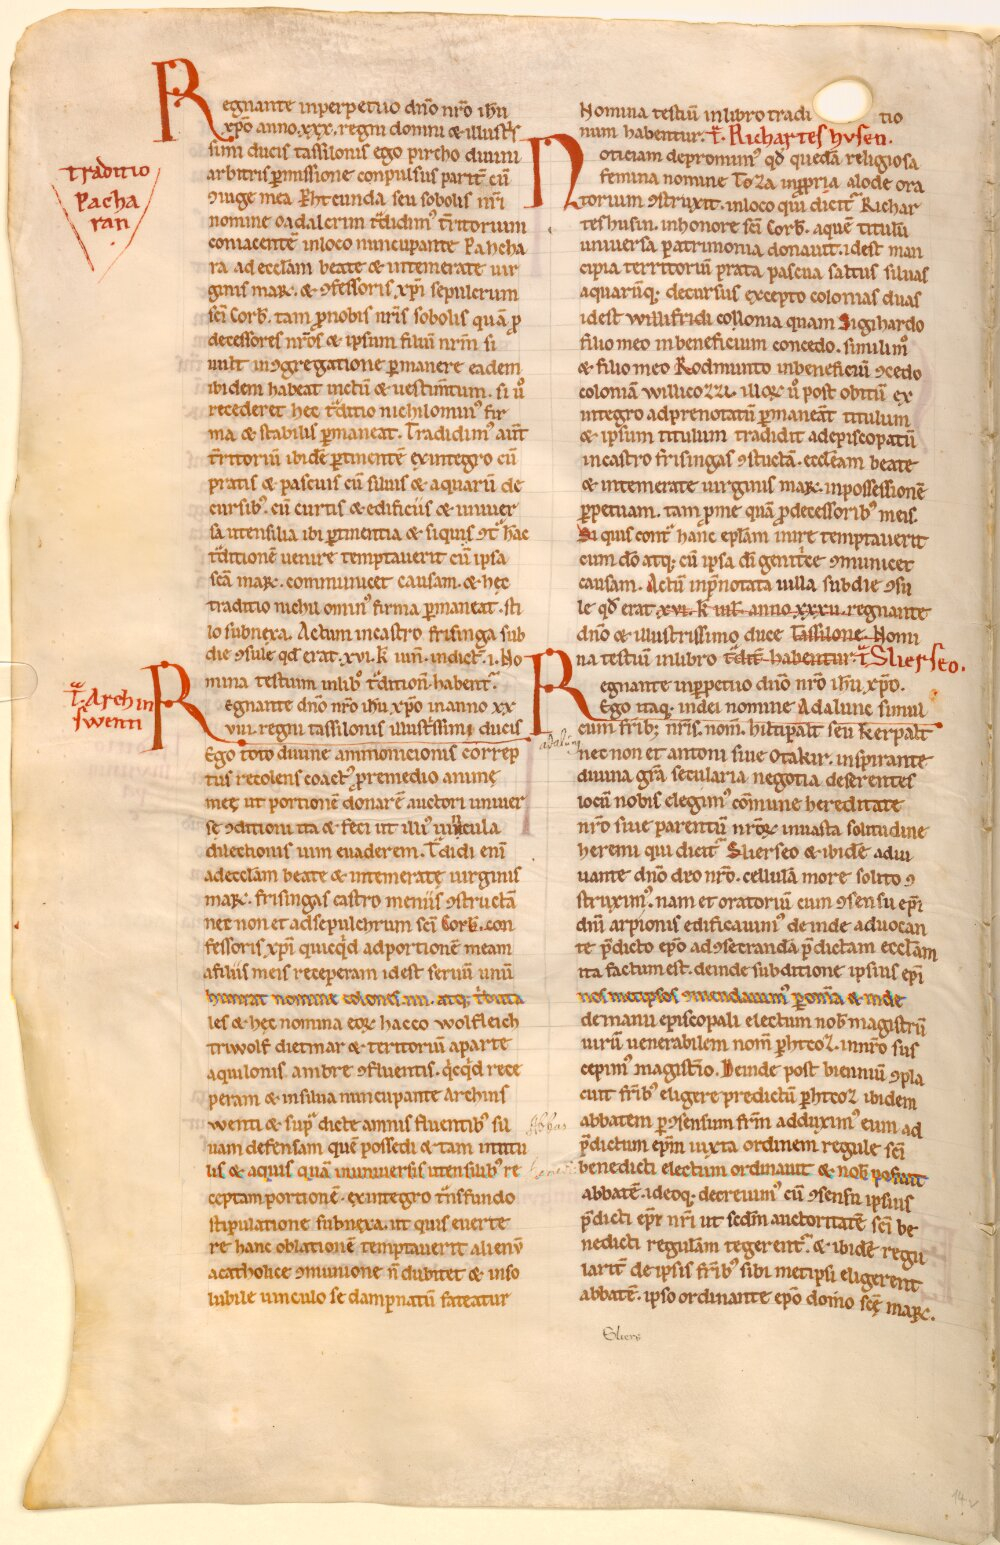 Regnante inperpetuo dno nro ihu
xpo anno.xxx.regni domni & illustris
simi ducis tassilonis ego pircho diuini
traditio
Pacha
ran
arbitris pmissione conpulsus parit cu
ꝯiuge mea Ehtcunda seu sobolis nri
nomine oadalcrim tdidim' tritorium
coniacente inloco nuncupante Pahcha
ra ad ecclam beate & intemerate uir
ginis mar. & ꝯfessoris xpi sepulcrum
sci Corb. tam pnobis nris sobolis qua p
decessores nros & ipsum filiu nrm si
uult inꝯgregatione pmanere eadem
ibidem habeat uictu & uestimtum. si u
recederet hec tditio nichilomin' fir
ma & stabilis pmaneat. Tradidim' aut
tritoriu ibide ptinente exintegro cu
pratis & pascuis cu siluis & aquaru de
cursib'. cu curtis & edificiis & uniuer
sa utensilia ibi ptinentia & siquis ꝯt hac
tditione uenire temptauerit cu ipsa
sca mar. communicet causam. & hec
traditio nichil omin' firma pmaneat. sti
lo subnexa. Actum incastro frisinga sub
die ꝯsule qd erat.xvi.k iun. indict.i. No
mina testium inlib' tdition habent.
t. Archin
swenti
Regnante dno nro ihu xpo in anno xx
viii. regni tassilonis illustssimi ducis
Ego toto diuine ammonicionis correp
tus recolens coact' premedio anime
mee ut portione donare auctori uniuer
se ꝯditioni ita & feci ut illi' uincula
dilectionis uim euaderem. Tdidi eni
adecclam beate & intemerate uirginis
mar. frisingas castro meniis ꝯstructa
nec non et adsepulchrum sci Corb. con
fessoris xpi quicqd adportione meam
afiliis meis receperam idest seruu unu
hunrat nomine colones iiii. atq; tbuta
les & hec nomina eor hacco wolfleich
triwolf dietmar & teritoriu aparte
aquilonis ambre ꝯfluentis. qcqd rece
peram & insilua nuncupante Archins
wenti & sup dicte amnis fluentib' sil
uam defensam que possedi & tam intitu
lis & aquis qua inuniuersis utensilib' re
ceptam portione. exintegro tnsfundo
stipulatione subnexa. ut quis euerte
re hanc oblatione temptauerit alienu
acatholice ꝯmunione n dubitet & inso
lubile uinculo se dampnatu fateatur
Nomina testiu inlibro tradi tio
num habentur. t. Richartes husen.
Noticiam depromim' qd queda religiosa
femina nomine Toza inppria alode ora
torium ꝯstruxit. inloco qui dicit Richar
teshusin. inhonore sci Corb. aque titulu
uniuersa patrimonia donauit. idest man
cipia territoriu prata pascua saltus siluas
aquaruq; decursus excepto colonias duas
idest willifridi collonia quam Sigihardo
filio meo inbeneficium concedo. similim'
& filio meo Rodmunto inbeneficiu ꝯcedo
colonia willicozzi. illor u post obitu ex
integro adprenotatu pmaneat titulum
& ipsum titulum tradidit adepiscopatu
incastro frisingas ꝯstructa. eccleam beate
& intemerate uirginis mar. inpossessione
ppetuam. tam pme qua pdecessorib' meis.
Si quis cont hanc eplam inire temptauerit
cum do atq; cu ipsa di genitce ꝯmunicet
causam. Actu inpnotata uilla subdie ꝯsu
le qd erat xvi. k iul. anno xxxii. regnante
dno & illustrissimo duce Tassilone. Nomi
na testiu inlibro tdit habentur. t Slierseo.
Regnante inppetuo dno nro ihu xpo.
Ego itaq. indei nomine Adalunc simul
cum frib; nris. nom. hiltipalt seu kerpalt
adalūg
nec non et antoni siue Otakir. inspirante
diuina gra secularia negotia deserentes
locu nobis elegim' comune hereditate
nro siue parentu nror inuasta solitudine
heremi qui dicit Slierseo & ibide adiu
uante dno dro nro. cellula more solito ꝯ
struxim'. nam et oratoriu cum ꝯsensu epi
dni arpionis edificauim' deinde aduocan
te pdicto epo adꝯsecranda pdictam ecclam
ita factum est. deinde subditione ipsius epi
nos metipsos ꝯmendauim' pomia & inde
demanu episcopali electum nob magistru
uiru uenerabilem nom phtcoz. innro sus
cepim' magistio. Deinde post bienniu ꝯpla
cuit frib' eligere predictu phtcoz ibidem
Abbas
abbatem pꝯsensum frm adduxim' eum ad
pdictum epm iuxta ordinem regule sci
benedicti electum ordinauit & nob posuit
abbate. ideoq; decreuim' cu ꝯsensu ipsius
pdicti epi nri ut scdm auctoritate sci be
nedicti regulam tegerent. & ibide regu
larit de ipsis frib' sibi metipsi eligerent
abbate. ipso ordinante epo domo sce mar.
Sliers
14v